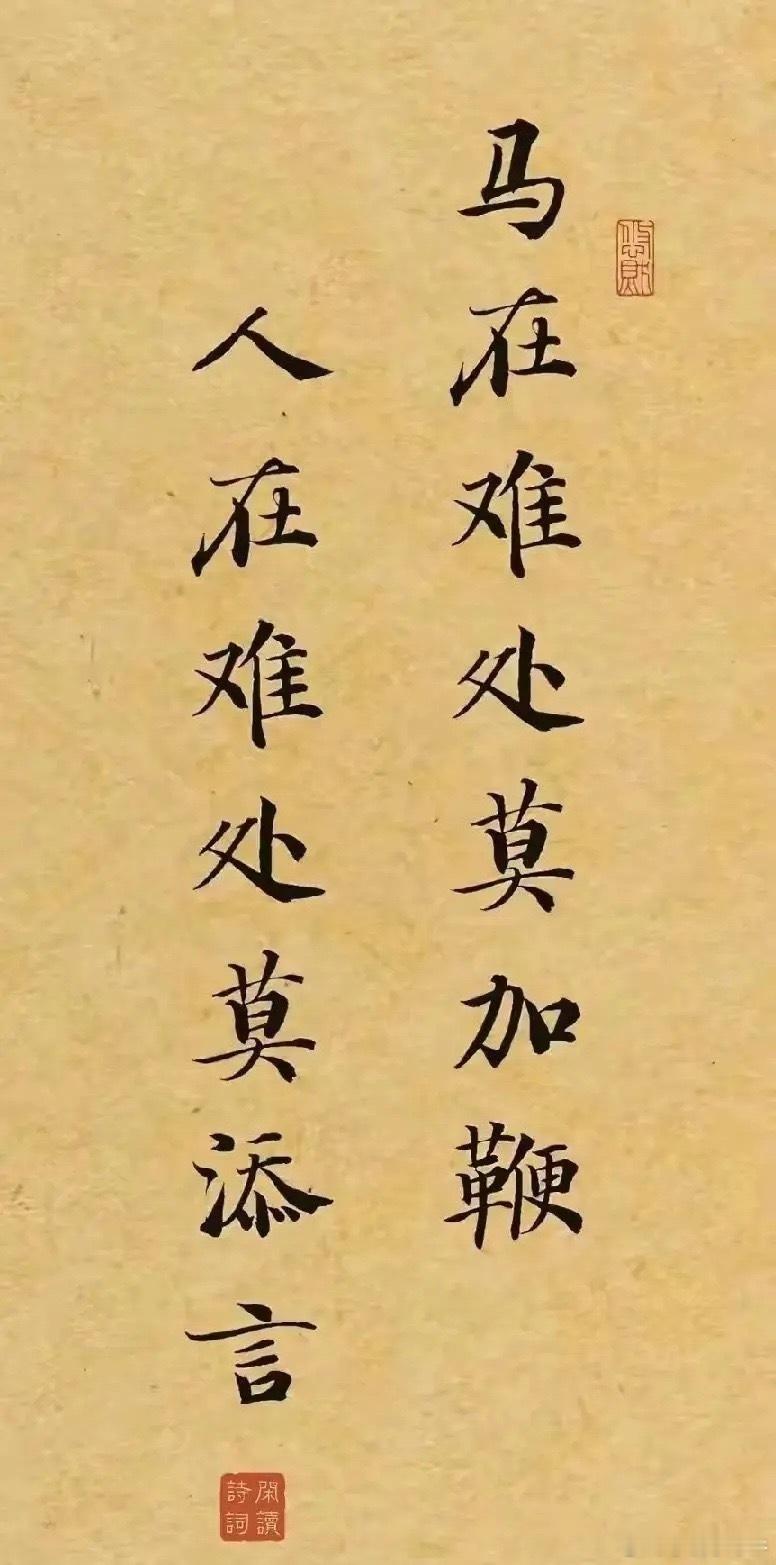 马在难处莫加鞭
人在难处莫添言
閑讀
詩詞